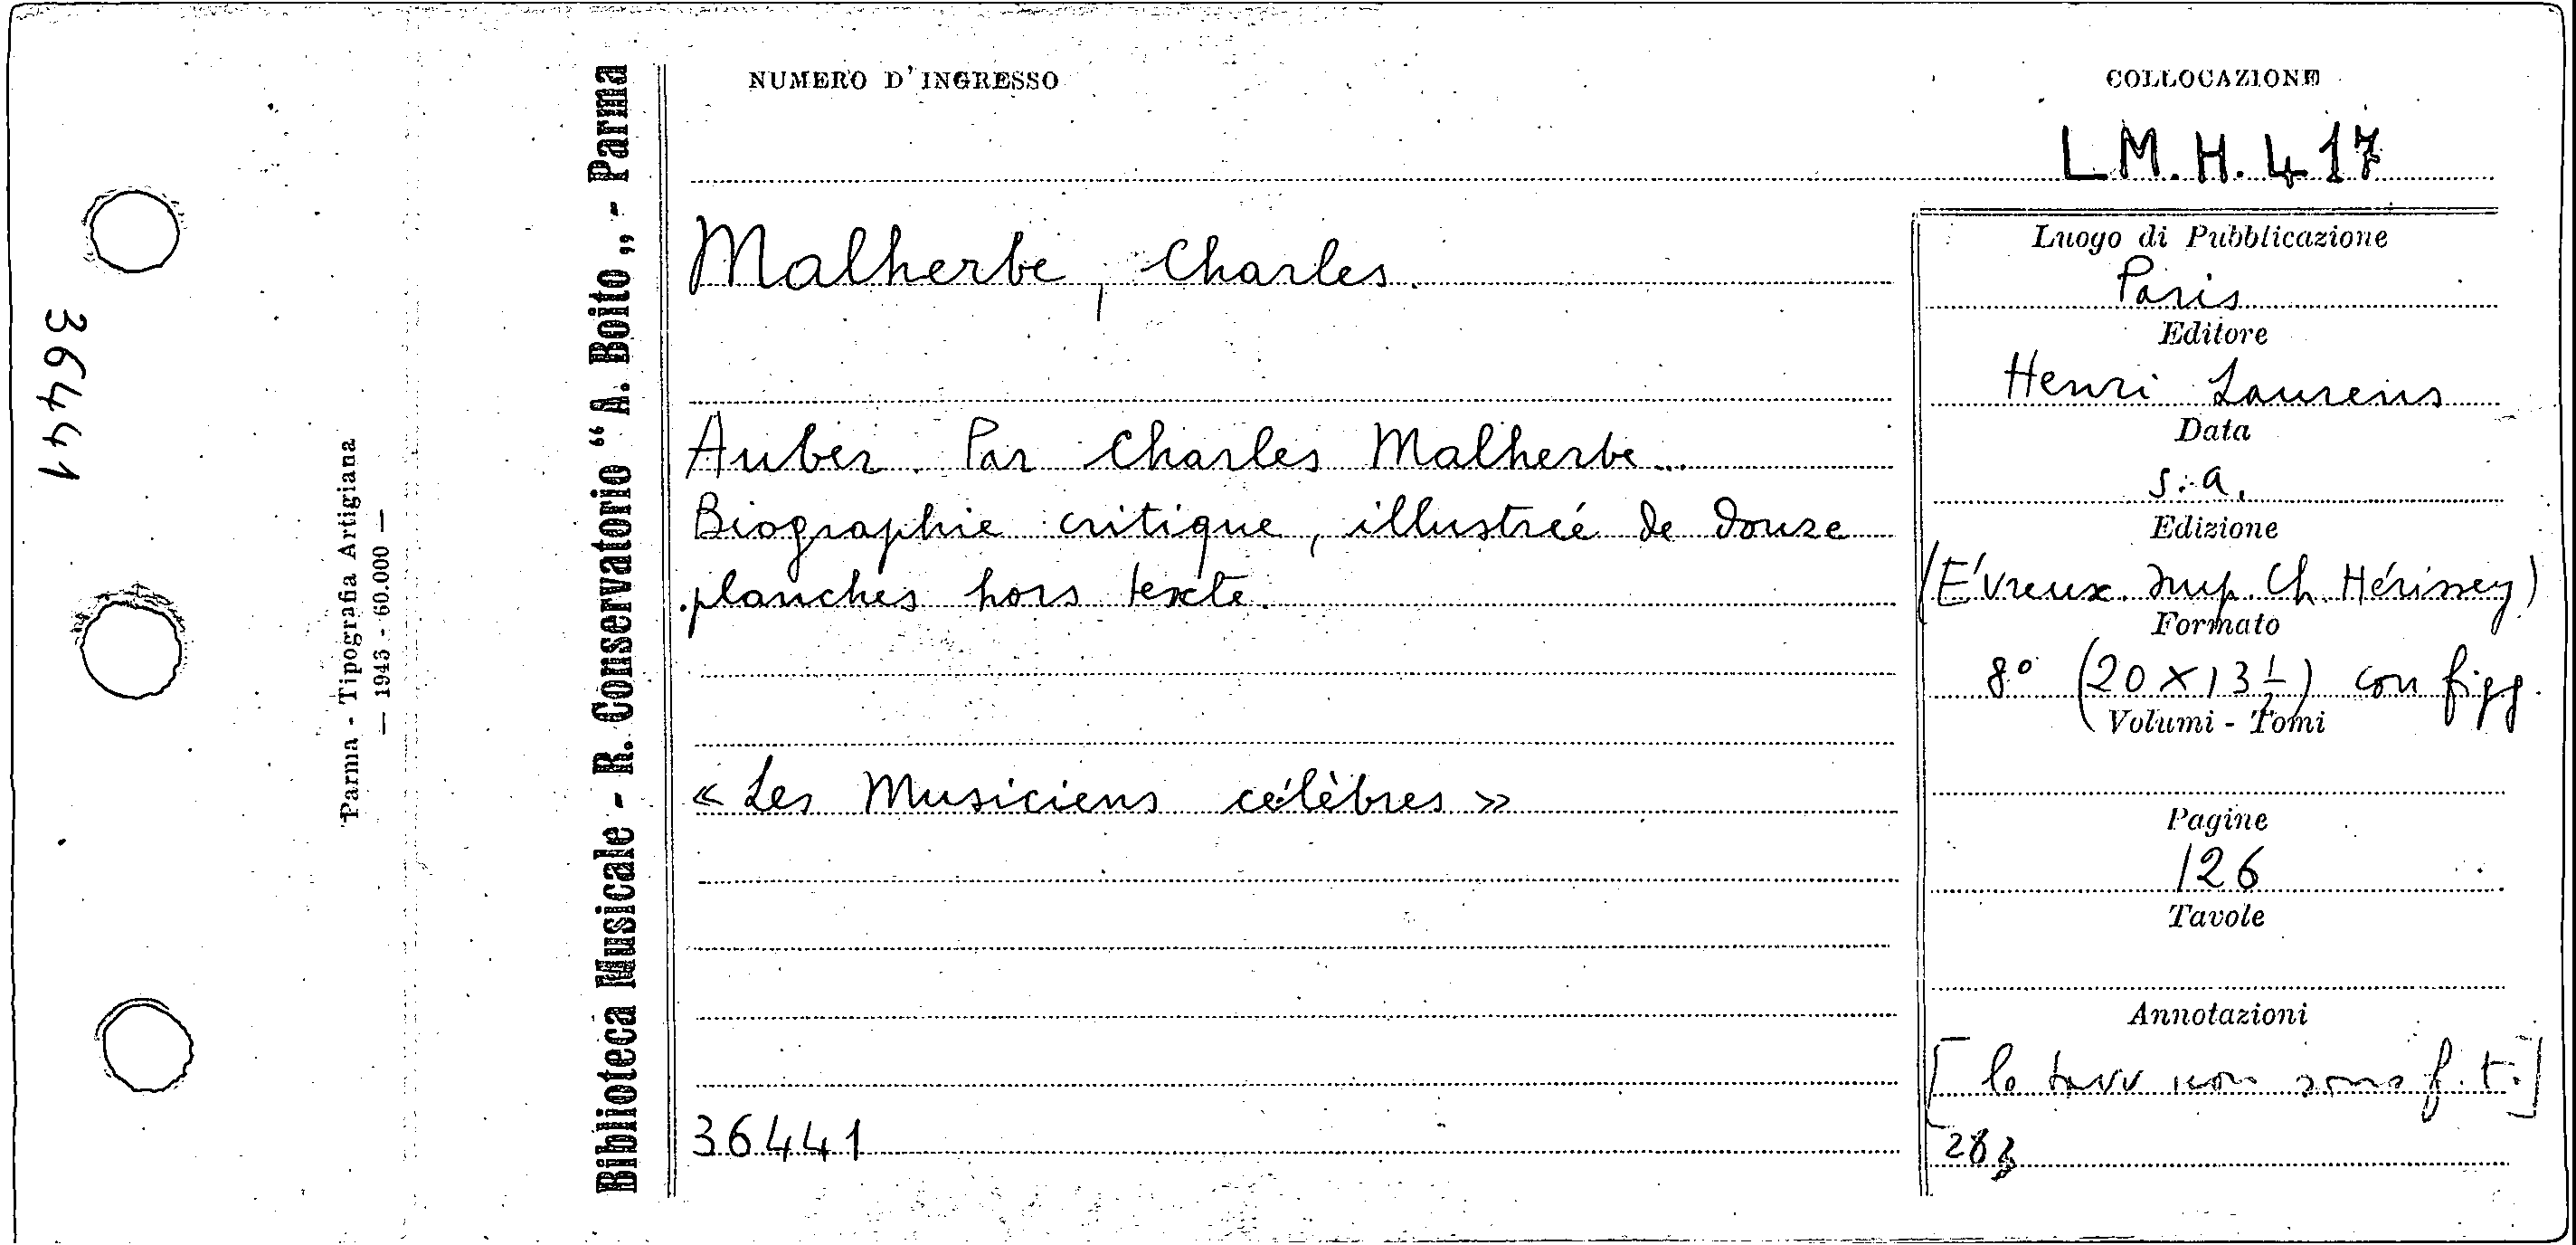 NUMERO D'INGRESSO
COLLOCAZIONE
L.M.H.417
Malherbe, Charles.
Auber. Par Charles Malherbe...
Biographie critique, illustreé de douze
planches hors texte.
« Les Musiciens célèbres »
36441
Luogo di Pubblicazione
Paris
Editore
Henri Laurens
Data
s.a.
Edizione
(E'vreux. Imp. Ch. Hérissey)
Formato
8° (20 × 13 ½) con figg.
Volumi - Tomi
Pagine
126
Tavole
Annotazioni
[le tavv non sono f.t.]
283
Biblioteca Musicale - R. Conservatorio “A. Boito„ - Parma
Parma - Tipografia Artigiana
— 1943 - 60.000 —
36441